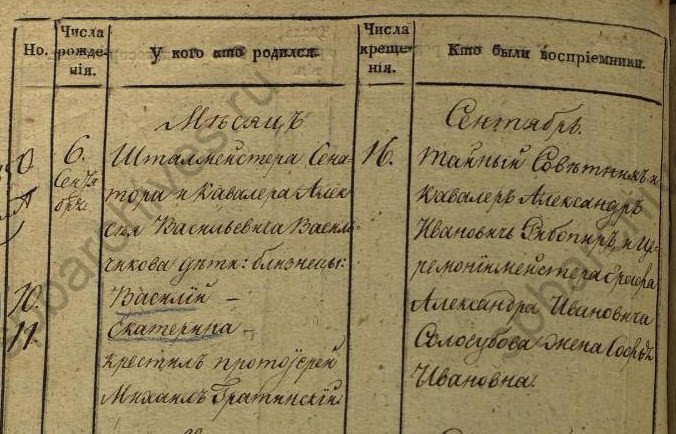 Но.
Числа рожденія.
У кого кто родился.
Числа крещенія.
Кто были воспріемники.
Мѣсяцъ
Сентябрь.
6.
Сентября
Шталмейстера Сена
тора и Кавалера Алек
сѣя Васильевича Василь
чикова дѣти: близнецы:
10.
Василій –
11.
Екатерина –
крестилъ протоіерей
Михаилъ Гратинскій
16.
Тайный Совѣтникъ и
Кавалеръ Александръ
Ивановичъ Рибопиръ и Це
ремоніймейстера
Александра Ивановича
Солосубова жена Софья
Ивановна.